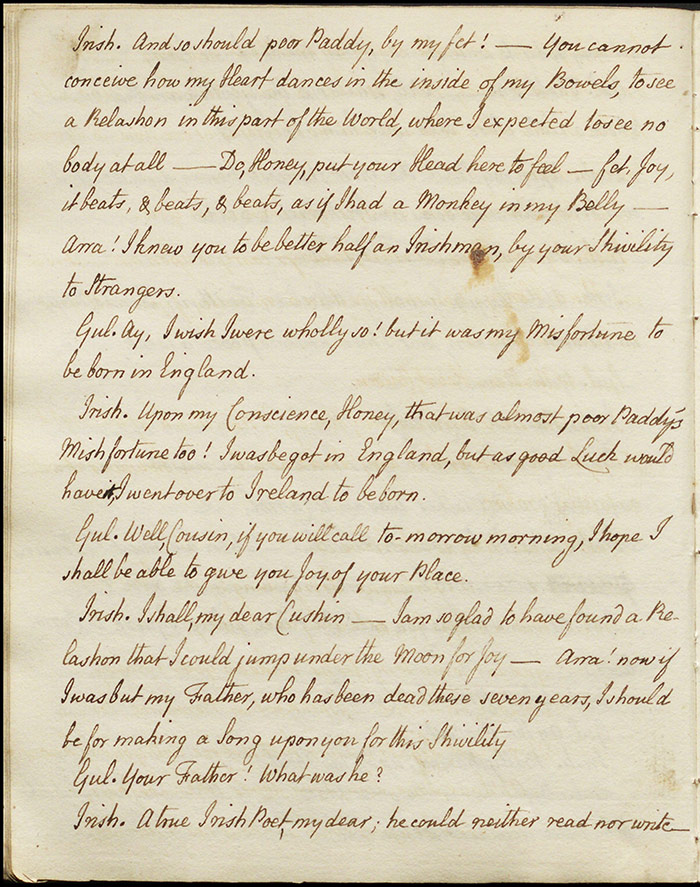 Irish. And so should poor Paddy, by my fct! — You cannot
conceive how my Heart dances in the inside of my Bowels, to see
a Relashon in this part of the World, where I expected to see no
body at all — Do, Honey, put your Head here to feel — fct. Joy,
it beats, & beats, & beats, as if I had a Monkey in my Belly —
Arra! I knew you to be better half an Irishman, by your Shivility
to Strangers.
Gul. Ay, I wish I were wholly so! but it was my Misfortune to
be born in England.
Irish. Upon my Conscience, Honey, that was almost poor Paddy's
Mishfortune too! I was begot in England, but as good Luck would
have it, I went over to Ireland to be born.
Gul. Well, Cousin, if you will call to-morrow morning, I hope I
shall be able to give you Joy of your Place.
Irish. I shall, my dear Cushin — I am so glad to have found a Re-
lashon that I could jump under the Moon for Joy — Arra! now if
I was but my Father, who has been dead these seven years, I should
be for making a Song upon you for this Shivility
Gul. Your Father! What was he?
Irish. A true Irish Poet, my dear; he could neither read nor write